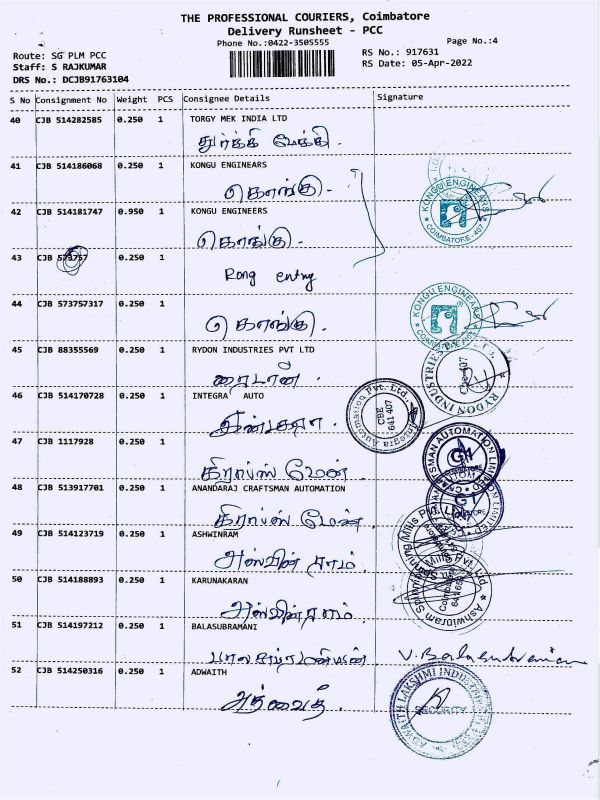 THE PROFESSIONAL COURIERS, Coimbatore
Delivery Runsheet - PCC
Phone No.:0422-3505555
Page No.:4
Route: SG PLM PCC
RS No.: 917631
Staff: S RAJKUMAR
RS Date: 05-Apr-2022
DRS No.: DCJB91763104
S No Consignment No Weight PCS Consignee Details Signature
40 CJB 514282585 0.250 1 TORGY MEK INDIA LTD
41 CJB 514186068 0.250 1 KONGU ENGINEARS
கொங்கு.
KONGU ENGINEARS
COIMBATORE - 407
42 CJB 514181747 0.950 1 KONGU ENGINEERS
கொங்கு.
43 CJB 0.250 1
Rong entry
44 CJB 573757317 0.250 1
கொங்கு.
KONGU ENGINEARS
45 CJB 88355569 0.250 1 RYDON INDUSTRIES PVT LTD
ரைடான்.
RYDON INDUSTRIES
46 CJB 514170728 0.250 1 INTEGRA AUTO
Integra Automation Pvt. Ltd.
CBE
641 407
47 CJB 1117928 0.250 1
கிராப்ஸ் மேன்.
48 CJB 513917701 0.250 1 ANANDARAJ CRAFTSMAN AUTOMATION
கிராப்ஸ் மேன்.
49 CJB 514123719 0.250 1 ASHWINRAM
அஸ்வின் ராம்.
50 CJB 514188893 0.250 1 KARUNAKARAN
அஸ்வின் ராம்.
Ashwinram Spinning Mills Pvt. Ltd
51 CJB 514197212 0.250 1 BALASUBRAMANI
பாலசுப்ரமணியன்
V. Balasubramanian
52 CJB 514250316 0.250 1 ADWAITH
அத்வைத்.
ADWAITH LAKSHMI
SECURITY